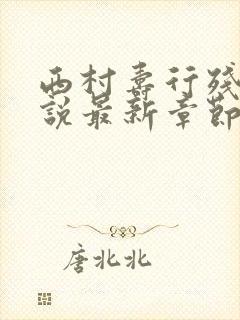 西村寿行残
说最新章节
唐北北